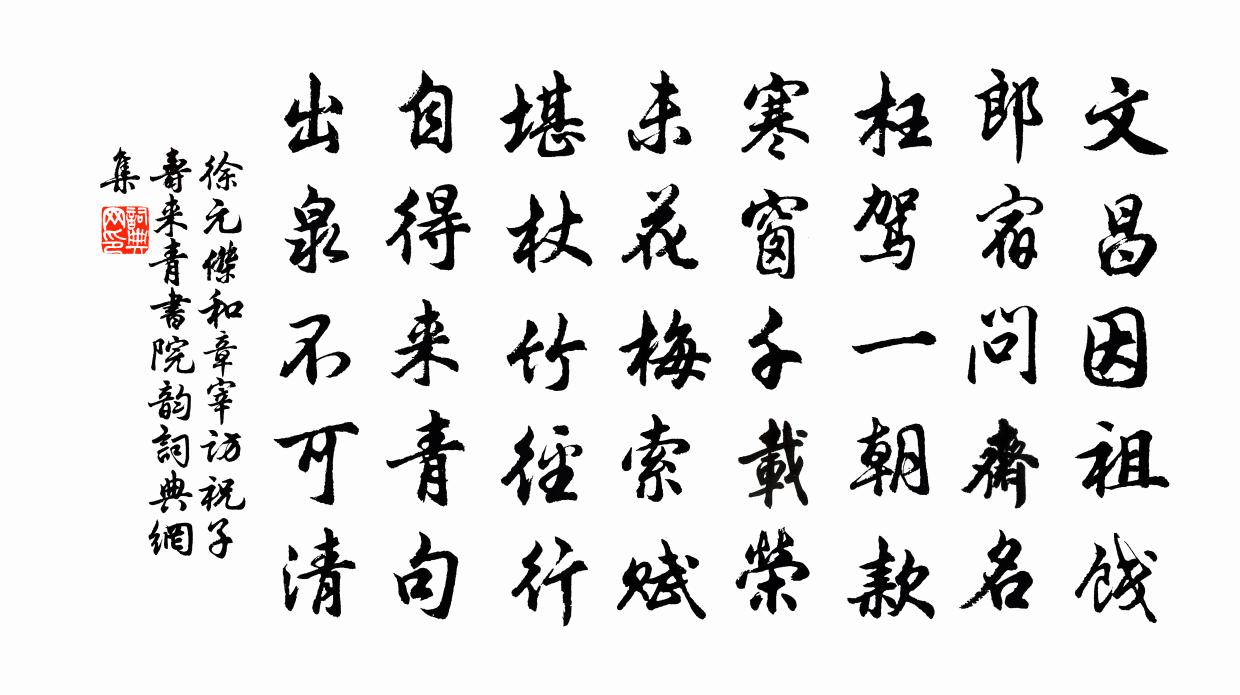 文昌因祖餞
郎宿問齋名
枉驾一朝款
寒窗千載榮
未花梅索赋
堪杖竹徑行
自得来青句
出泉不可清
徐元傑和章宰访祝子
壽来青書院韵詞典網
集
詞典網印